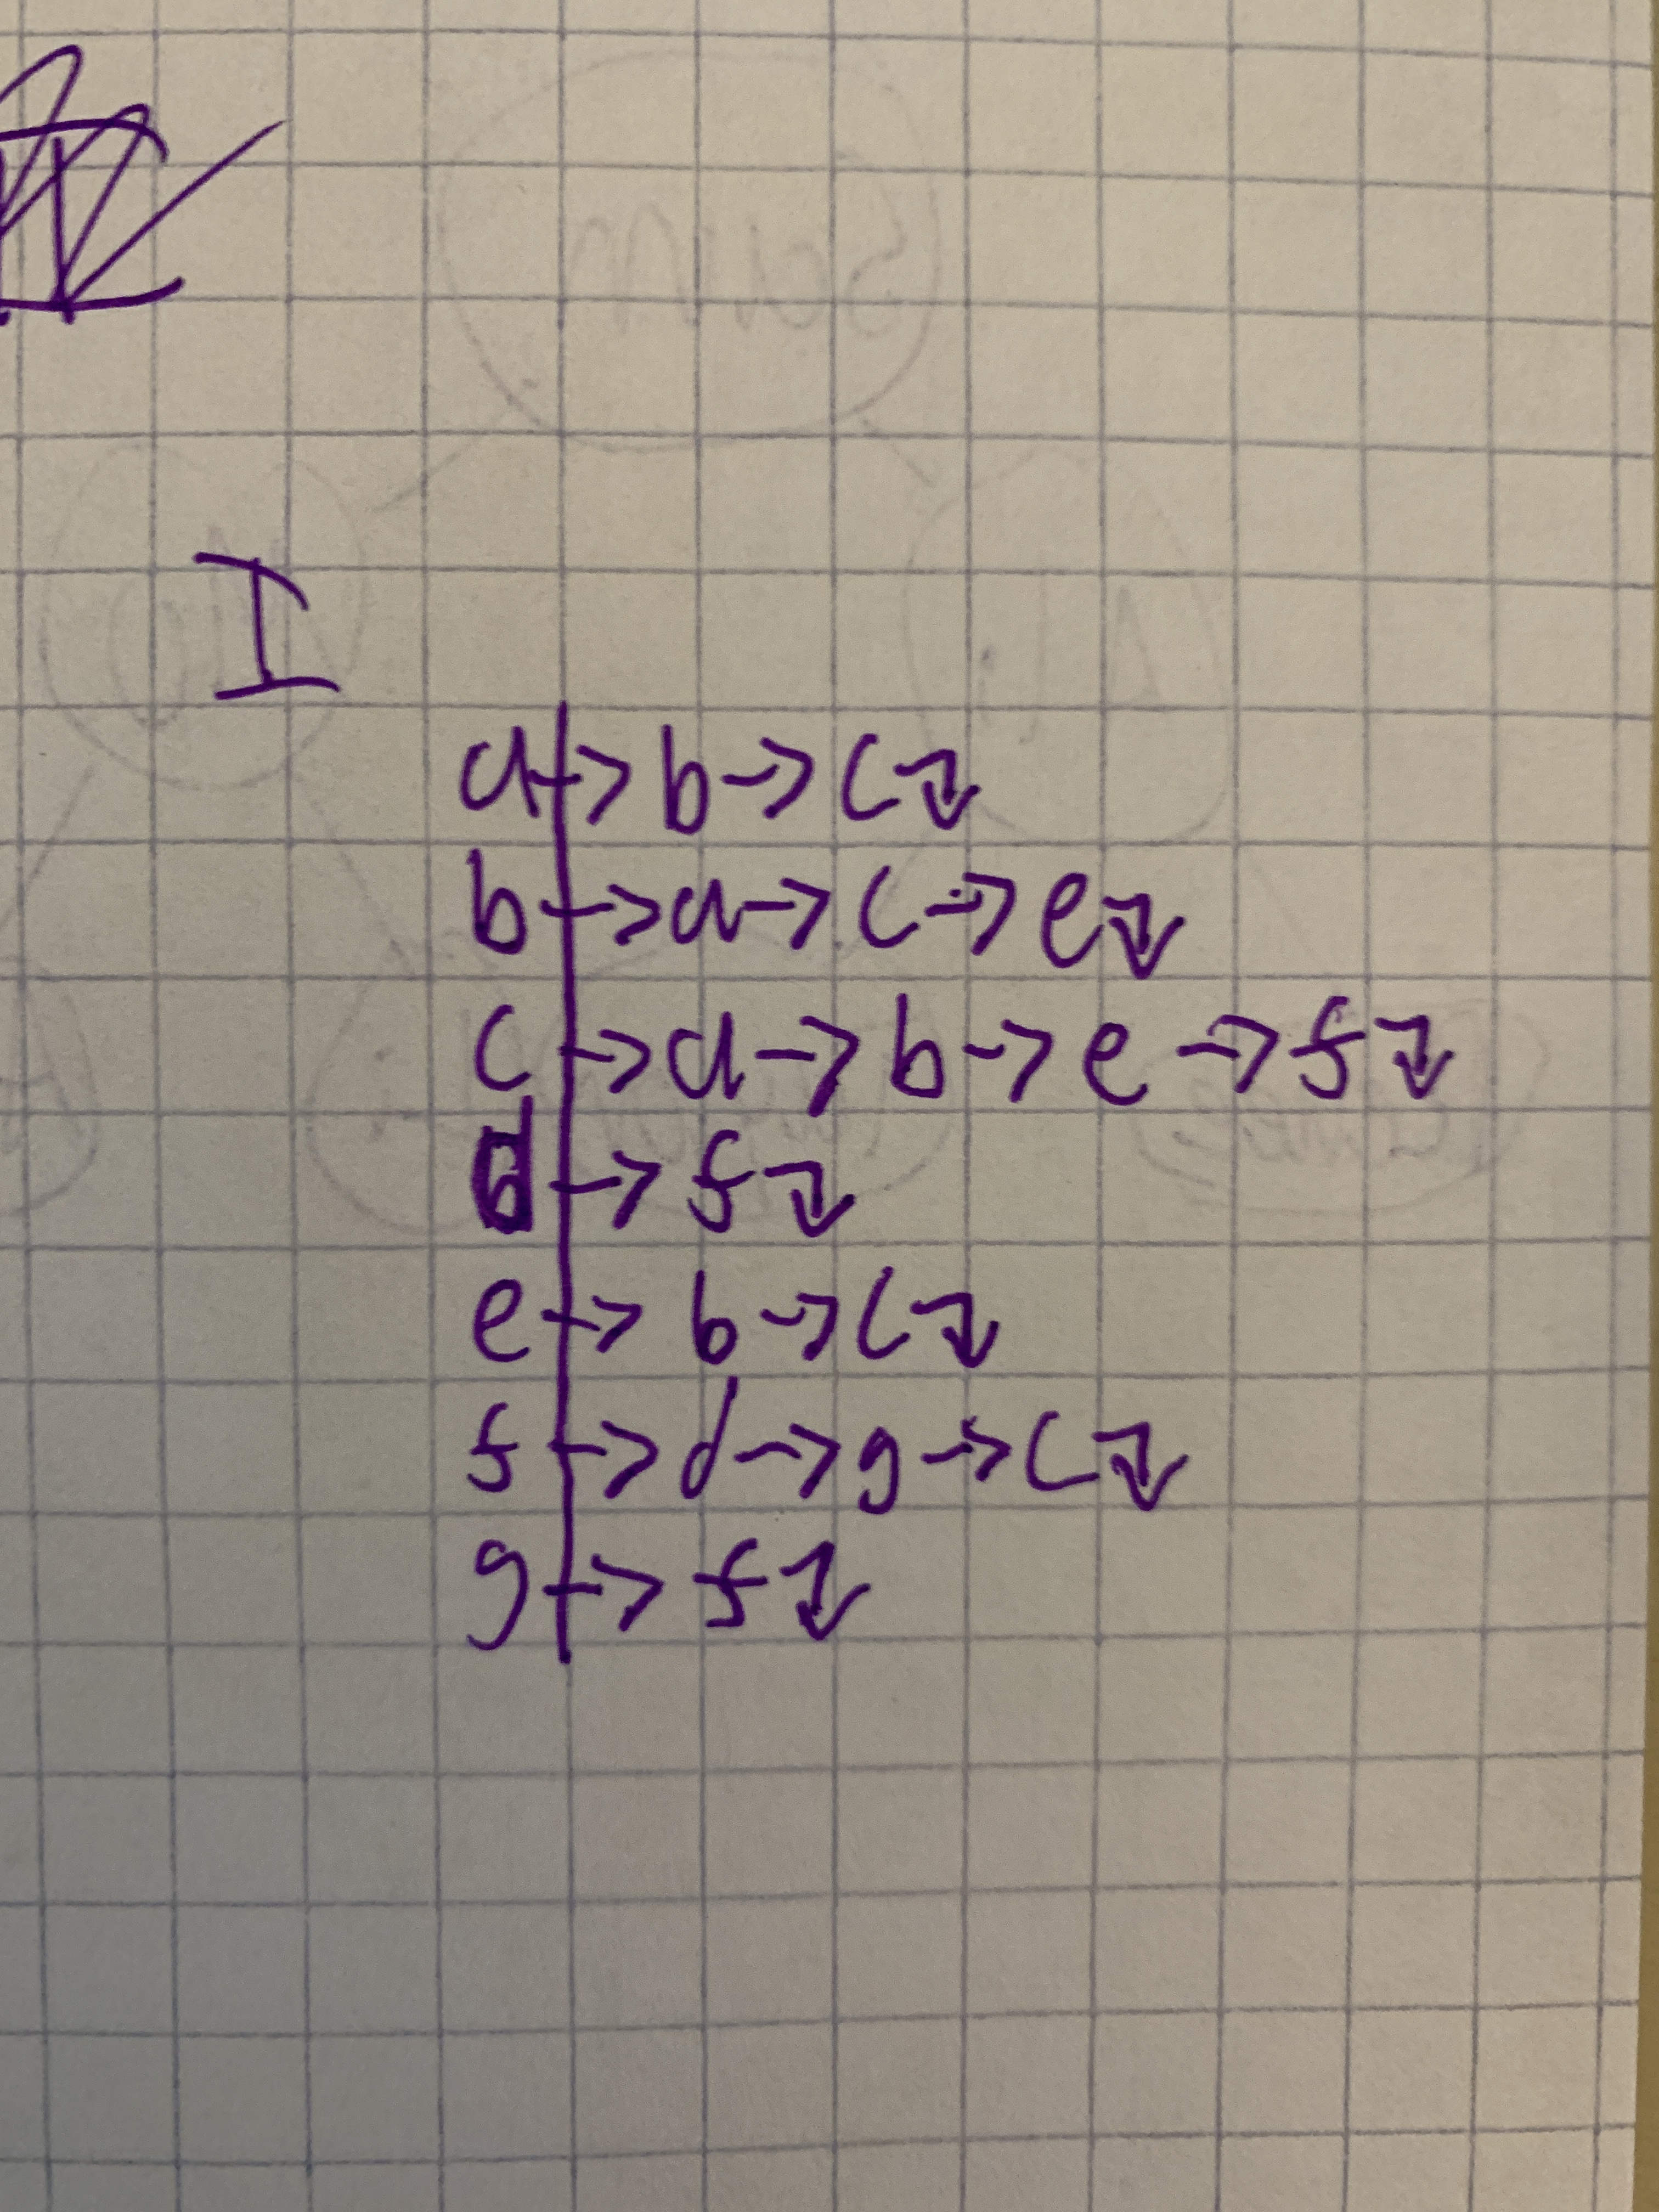 I
a→b→c↴
b→a→c→e↴
c→a→b→e→f↴
d→f↴
e→b→c↴
f→d→g→c↴
g→f↴